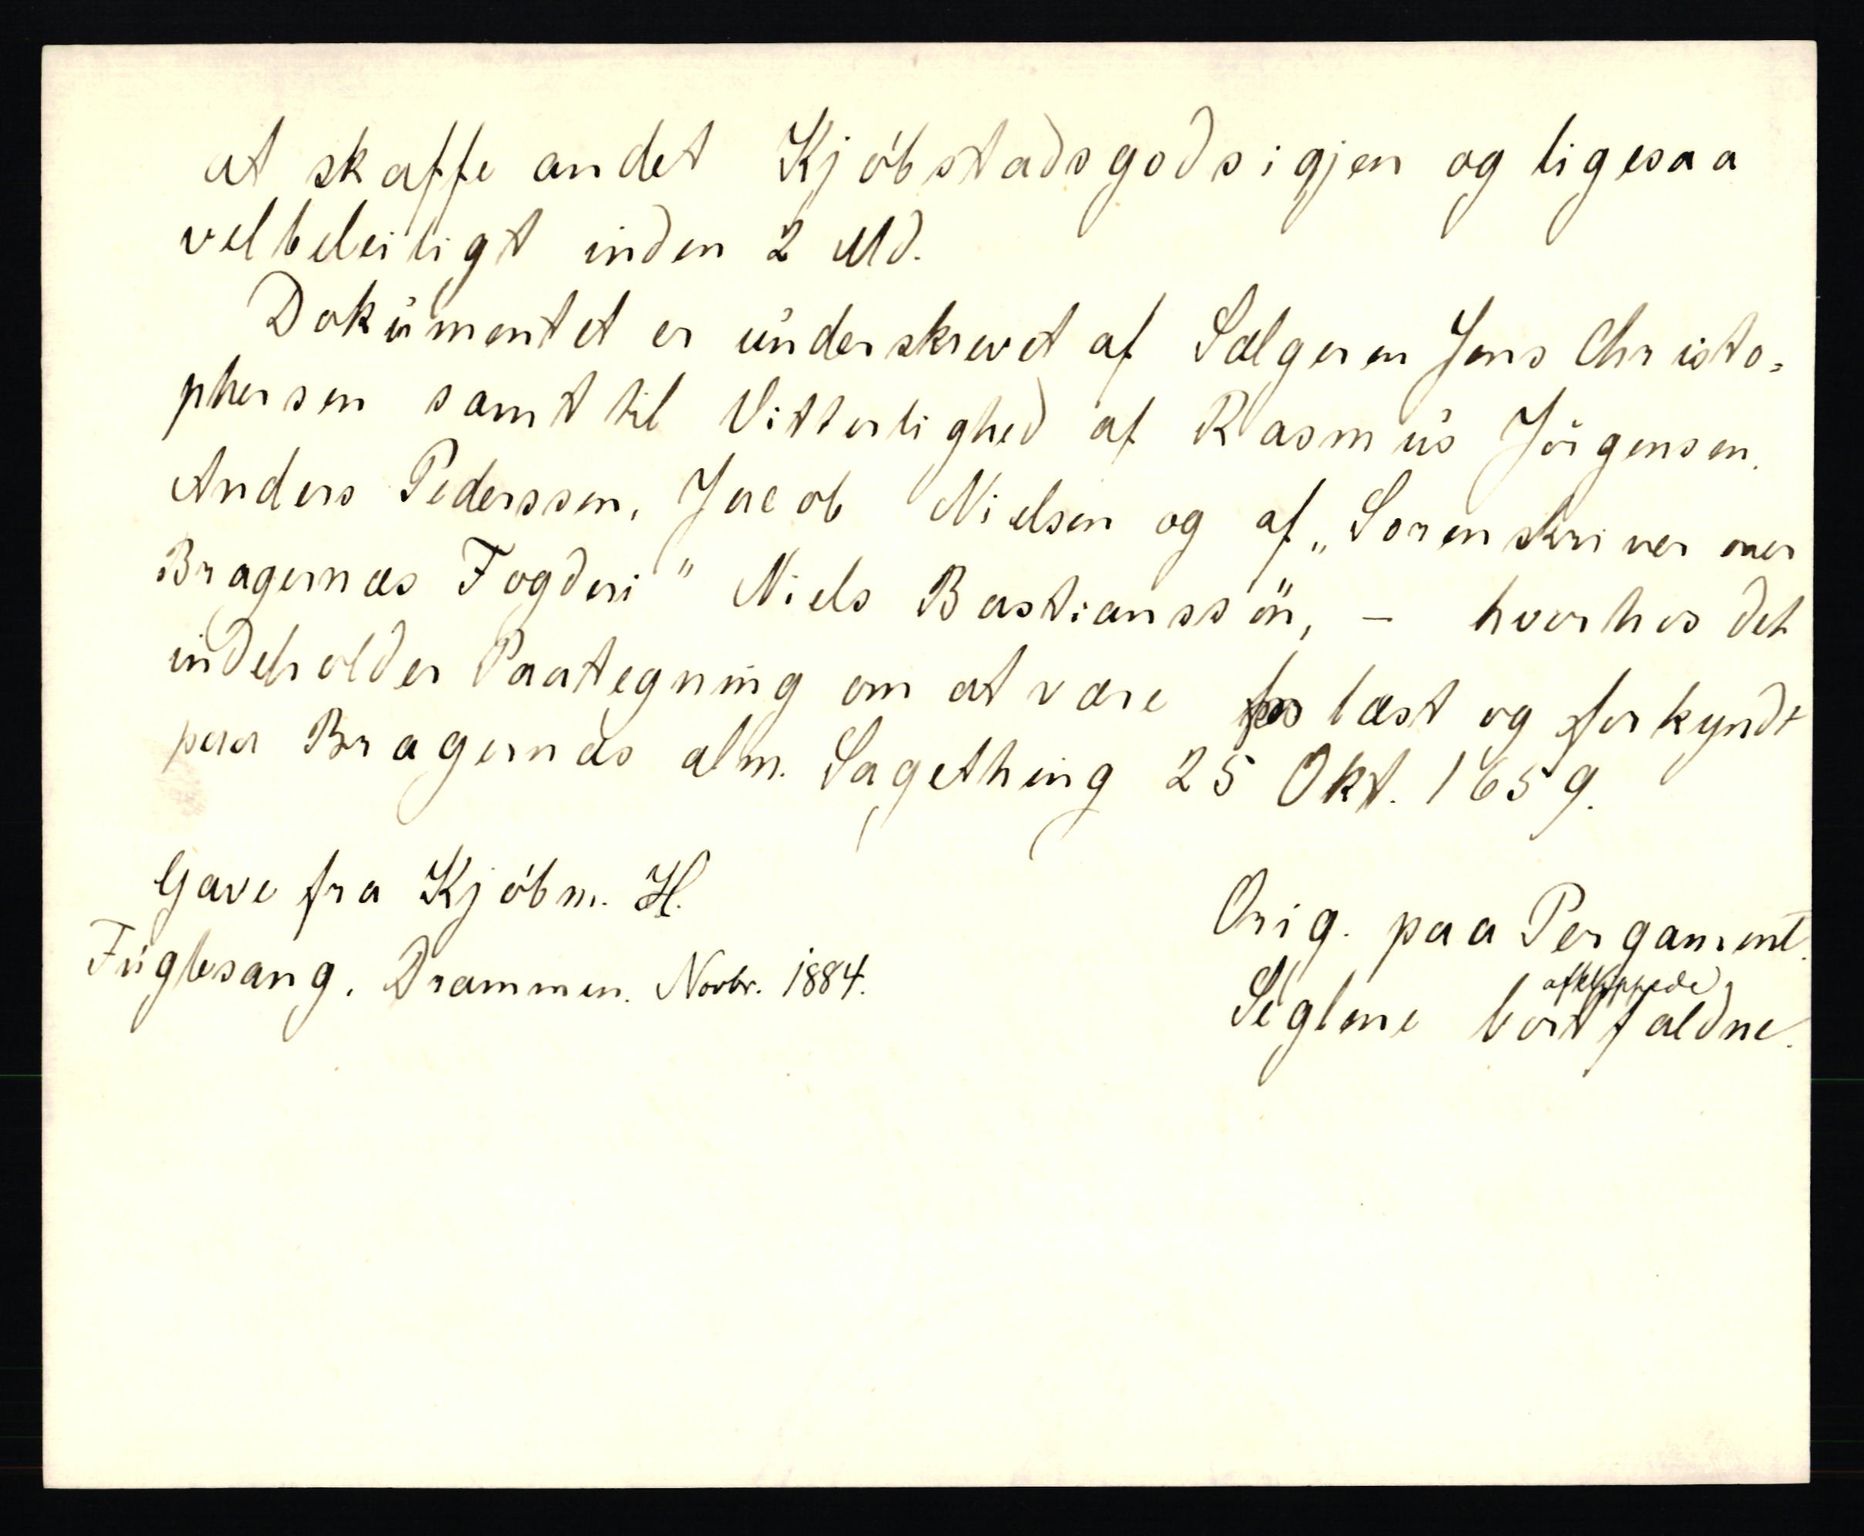 at skaffe andet Kjöbstadsgods igjen og ligesaa
velbeleiligt inden 2 Md.
Dokumentet er underskrevet af Sælgeren Jens Christo=
phersen samt til Vitterlighed af Rasmus Jörgensen.
Anders Pederssen, Jacob Nielsen og af „Sorenskriver over
Bragernæs Fogderi" Niels Bastianssön, — hvorhos det
indeholder Paategning om at være læst og forkyndt
paa Bragernæs alm. Sagething 25 Okt. 1659.
Gave fra Kjöbm. H.
Fuglesang, Drammen. Novbr. 1884.
Orig. paa Pergament.
afklippede
Seglene bortfaldne.